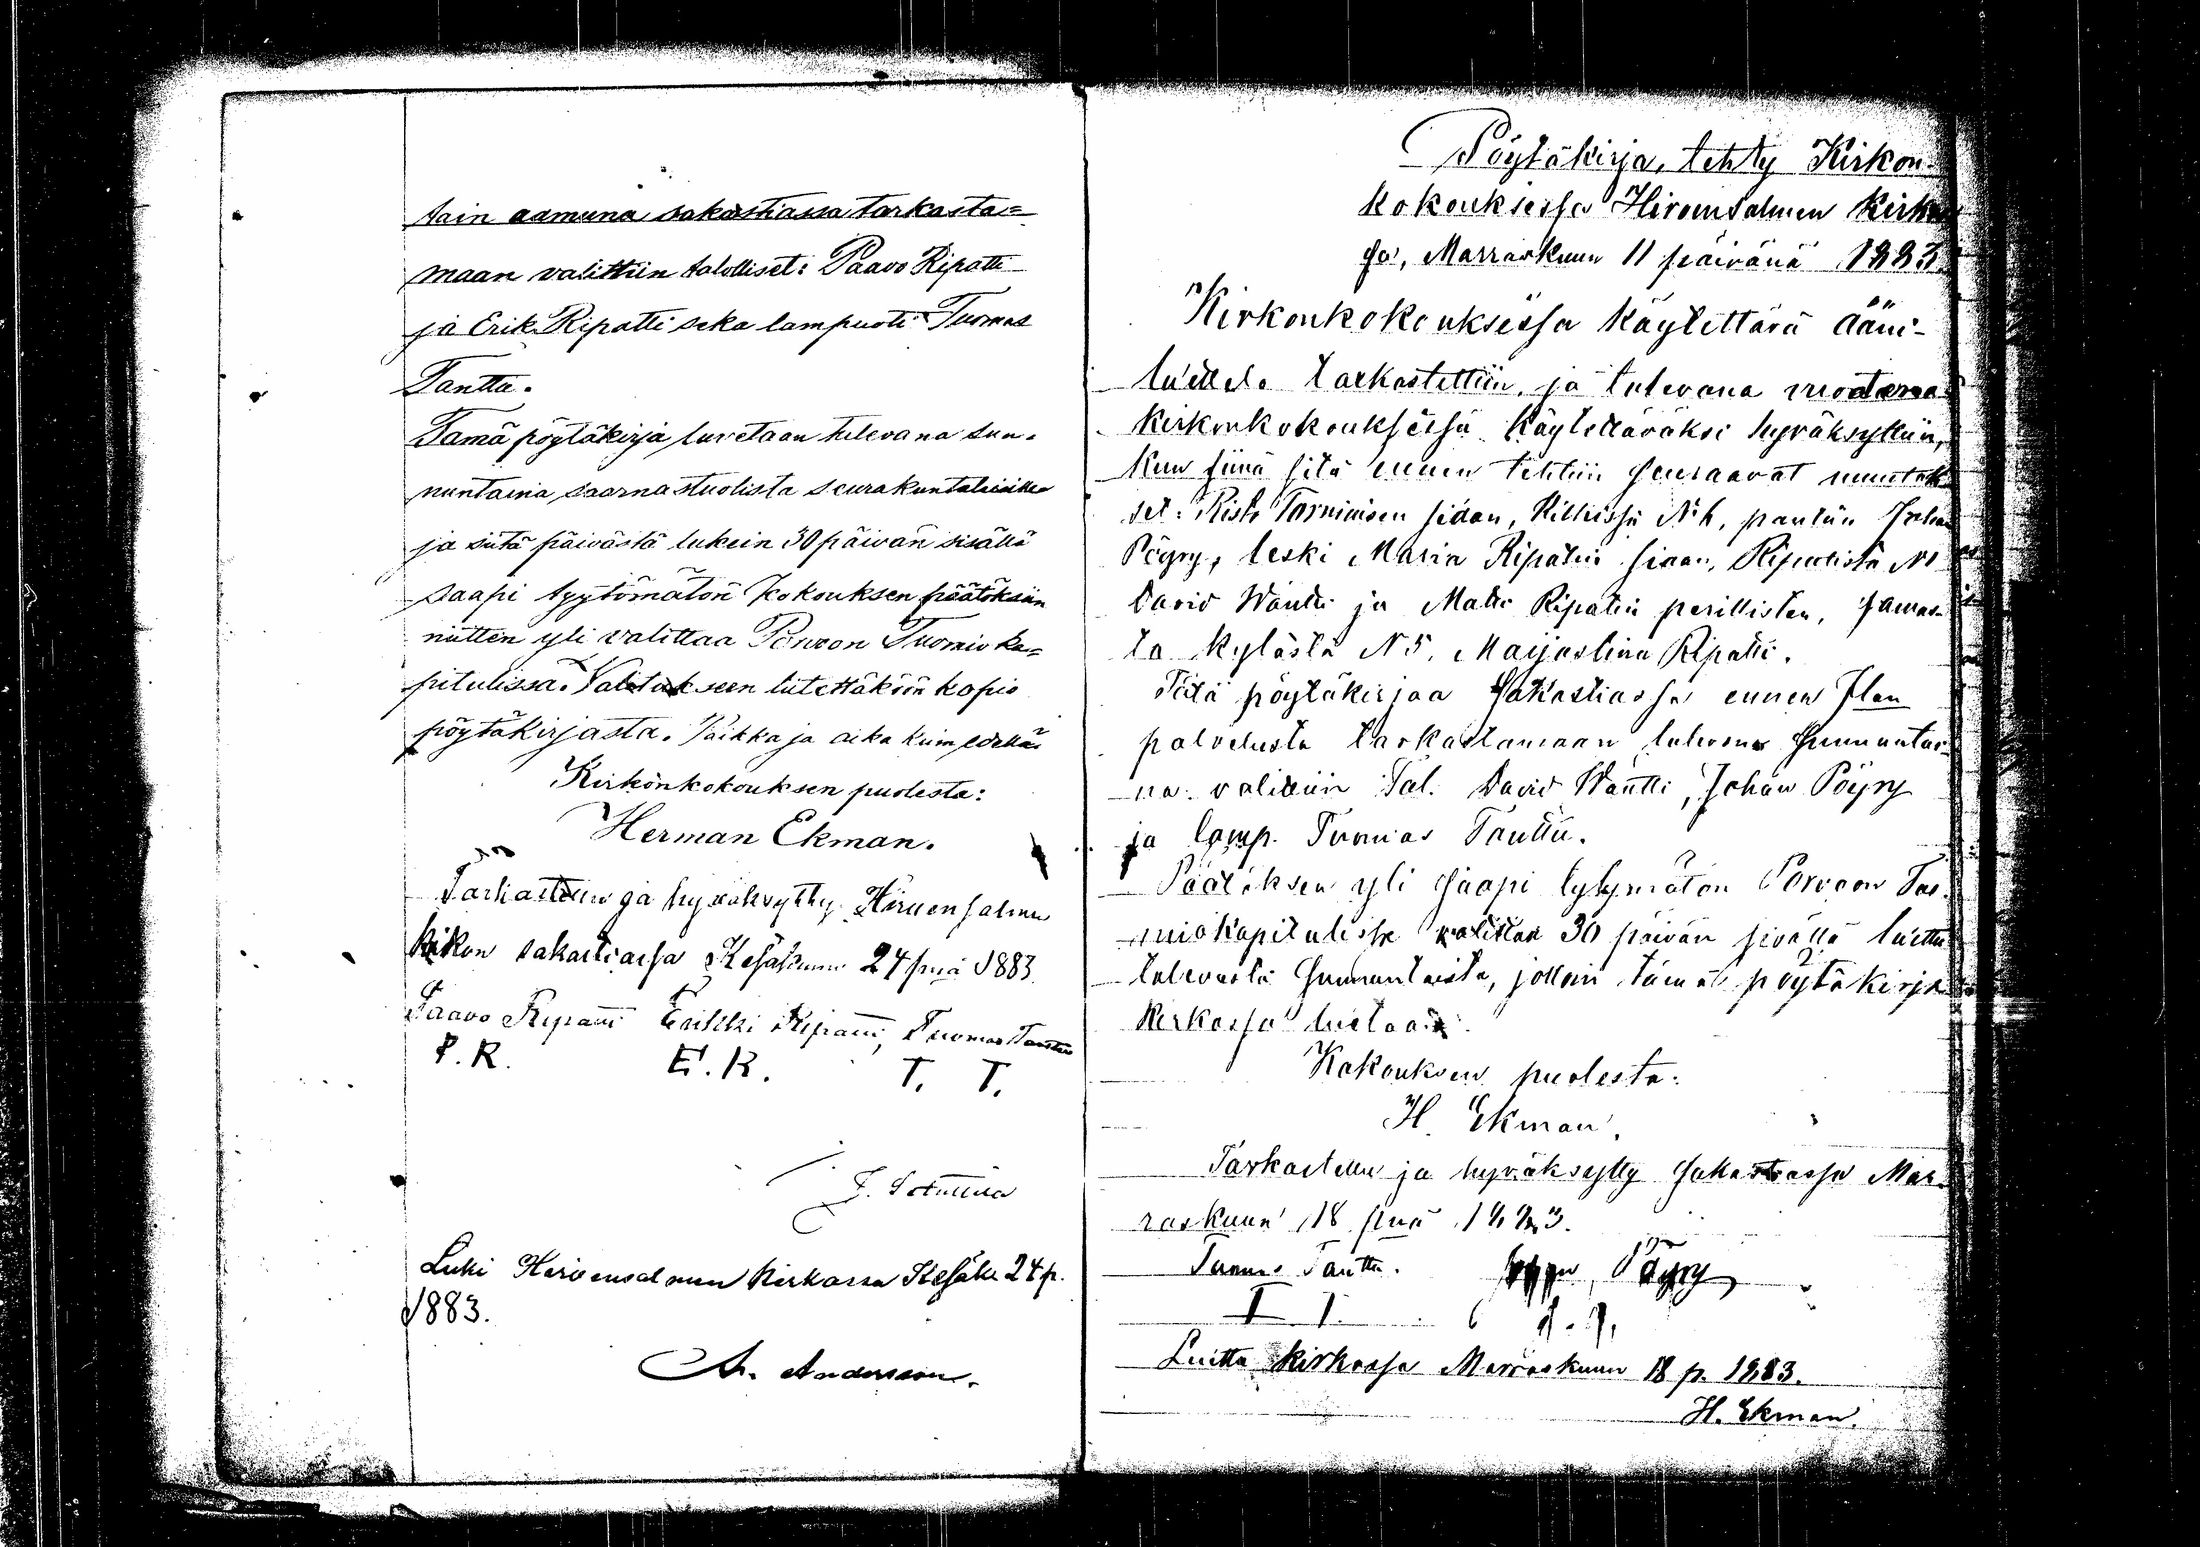 tain aamuna sakastiassa tarkasta=
maan valittiin talolliset: Paavo Ripatti
ja Erik Ripatti seka lampuoti Tuomas
Tantta.
Tämä pöytäkirja luvetaan tulevana sun-
nuntaina saarnastuolista seurakuntalaisille
ja siitä päivästä lukein 30 päivän sisällä
saapi tyytömätön kokouksen päätöksiin
niitten yli valittaa Porvoon Tuomioka=
pitulissa. Valitukseen liitettäköön kopio
pöytäkirjasta. Paikka ja aika kuin edellä.
Kirkonkokouksen puolesta:
Herman Ekman.
Tarkastettu ja hyväksytty Hirvensalmen
kirkon sakastiassa Kesäkuun 24 pnä 1883.
Paavo Ripatti Erikki Ripatti, Tuomas Tantta
P. R. E. R. T. T.
Luki Hirvensalmen kirkossa Kesäku 24 p.
1883.
A. Andersson.
Pöytäkirja, tehty Kirkon-
kokouksessa Hirvensalmen kirkos
sa, Marraskuun 11 päivänä 1883.
Kirkonkokouksessa käytettävä ääni-
luettelo tarkastettiin, ja tulevana vuotena
kirkonkokouksessa käytettäväksi hyväksyttiin,
kun siinä sitä ennen tehtiin seuraavat muutok
set: Risto Tarniaisen sidan, N:o 4, pantiin Johan
Pöyry, leski Maria Ripatin siaan, Ripatista N:o
David Wäntti ja Matti Ripatin perillisten, samas-
ta kylästä N 5, Maijastina Ripatti.
Tätä pöytäkirjaa sakastiassa ennen Jlan
palvelusta tarkastamaan tulevana sunnuntai-
na valittiin Tal. David Wäntti, Johan Pöyry
ja lamp. Tuomas Tanttu.
Päätöksen yli saapi tytymätön Porvoon Tuo-
miokapitulissa valittaa 30 päivän sisällä luettu
tulevasta sunnuntaista, jolloin tämä pöytäkirja
kirkossa luetaan.
Kokouksen puolesta:
H. Ekman.
Tarkastettu ja hyväksytty sakastiassa Mar-
raskuun 18 pnä 1883.
Tuomas Tantta. Pöyry
T T. J. P.
Luettu kirkossa Marraskuun 18 p. 1883.
H. Ekman.